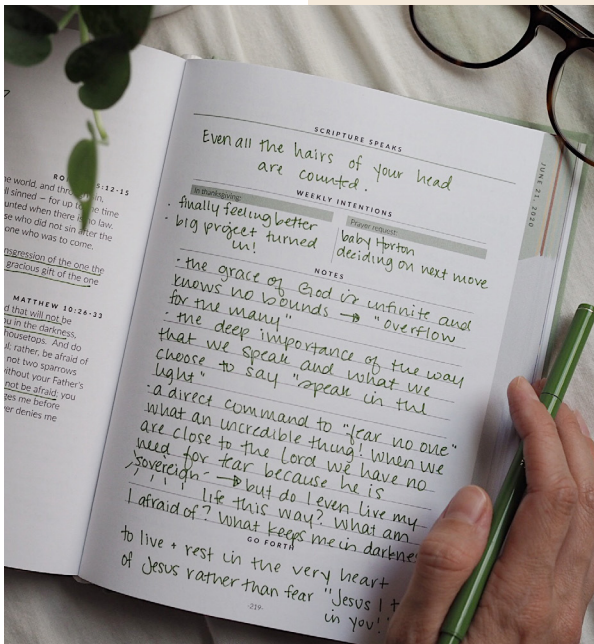 5:12-15
he world, and thro
ll sinned – for up to the time
unted when there is no law.
se who did not sin after the
one who was to come.
nsgression of the one the
gracious gift of the one
MATTHEW 10:26-33
d that will not be
ou in the darkness,
housetops. And do
ul, rather, be afraid of
not two sparrows
without your Father's
not be afraid; you
ges me before
ver denies me
SCRIPTURE SPEAKS
Even all the hairs of your head
are counted.
WEEKLY INTENTIONS
In thanksgiving:
· finally feeling better
· big project turned
in!
Prayer request:
baby Horton
deciding on next move
NOTES
· the grace of God is infinite and
knows no bounds → "overflow
for the many"
· the deep importance of the way
that we speak and what we
choose to say "speak in the
light"
· a direct command to "fear no one"
what an incredible thing! When we
are close to the Lord we have no
need for fear because he is
sovereign → but do I even live my
life this way? What am
I afraid of? What keeps me in darkne
GO FORTH
to live + rest in the very heart
of Jesus rather than fear "Jesus I t
in you!"
-219-
JUNE 21, 2020